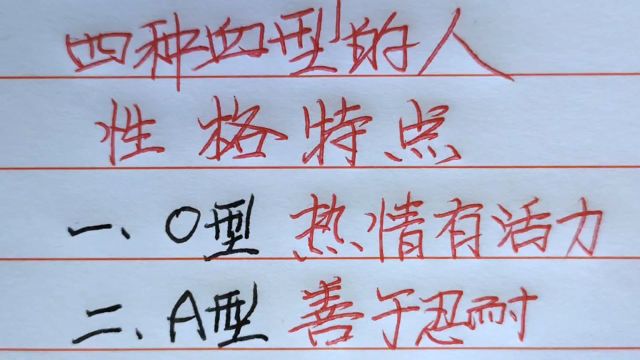 四种血型的人
性格特点
一、O型 热情有活力
二、A型 善于忍耐